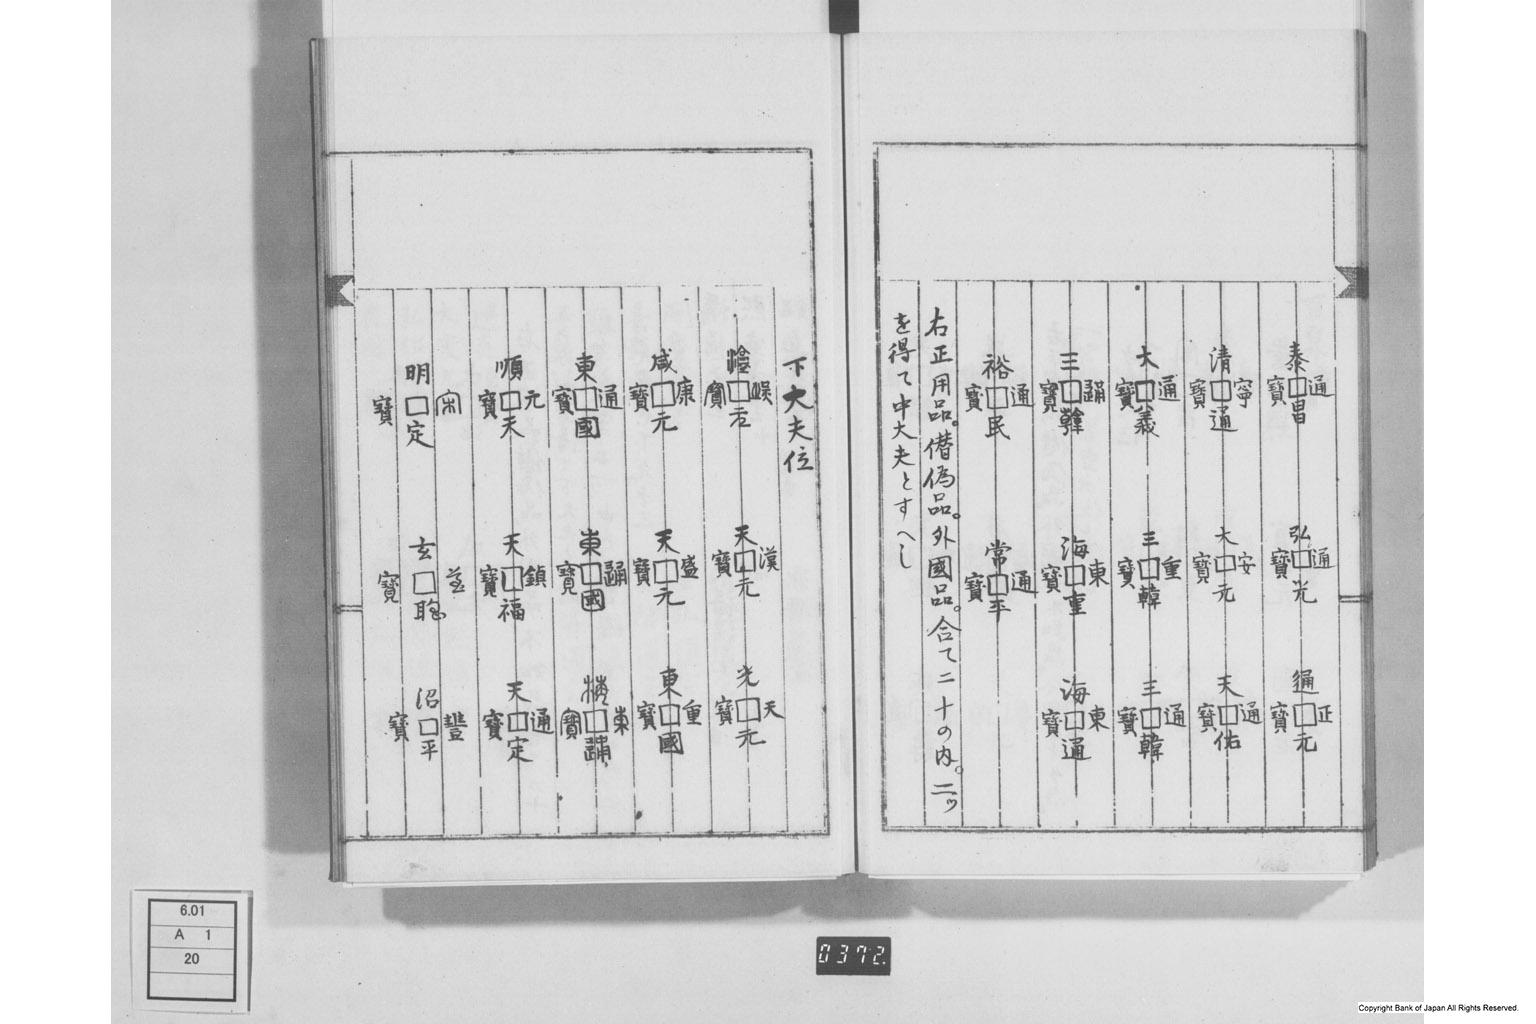 泰昌通寶
弘光通寶
通正元寶
清寧通寶
大安元寶
天佑通寶
大義通寶
三韓重寶
三韓通寶
三韓通寶
海東重寶
海東通寶
裕民通寶
常平通寶
右正用品。僭偽品。外國品。合て二十の内。二ツ
を得て中大夫とすへし
下大夫位
元寶
天漢元寶
光天元寶
咸康元寶
天盛元寶
東國重寶
東國通寶
東國通寶
海東通寶
順天元寶
天福鎮寶
天定通寶
明定宋寶
玄聡寶
沼平豐寶
6.01
A 1
20
0372.
Copyright Bank of Japan All Rights Reserved.